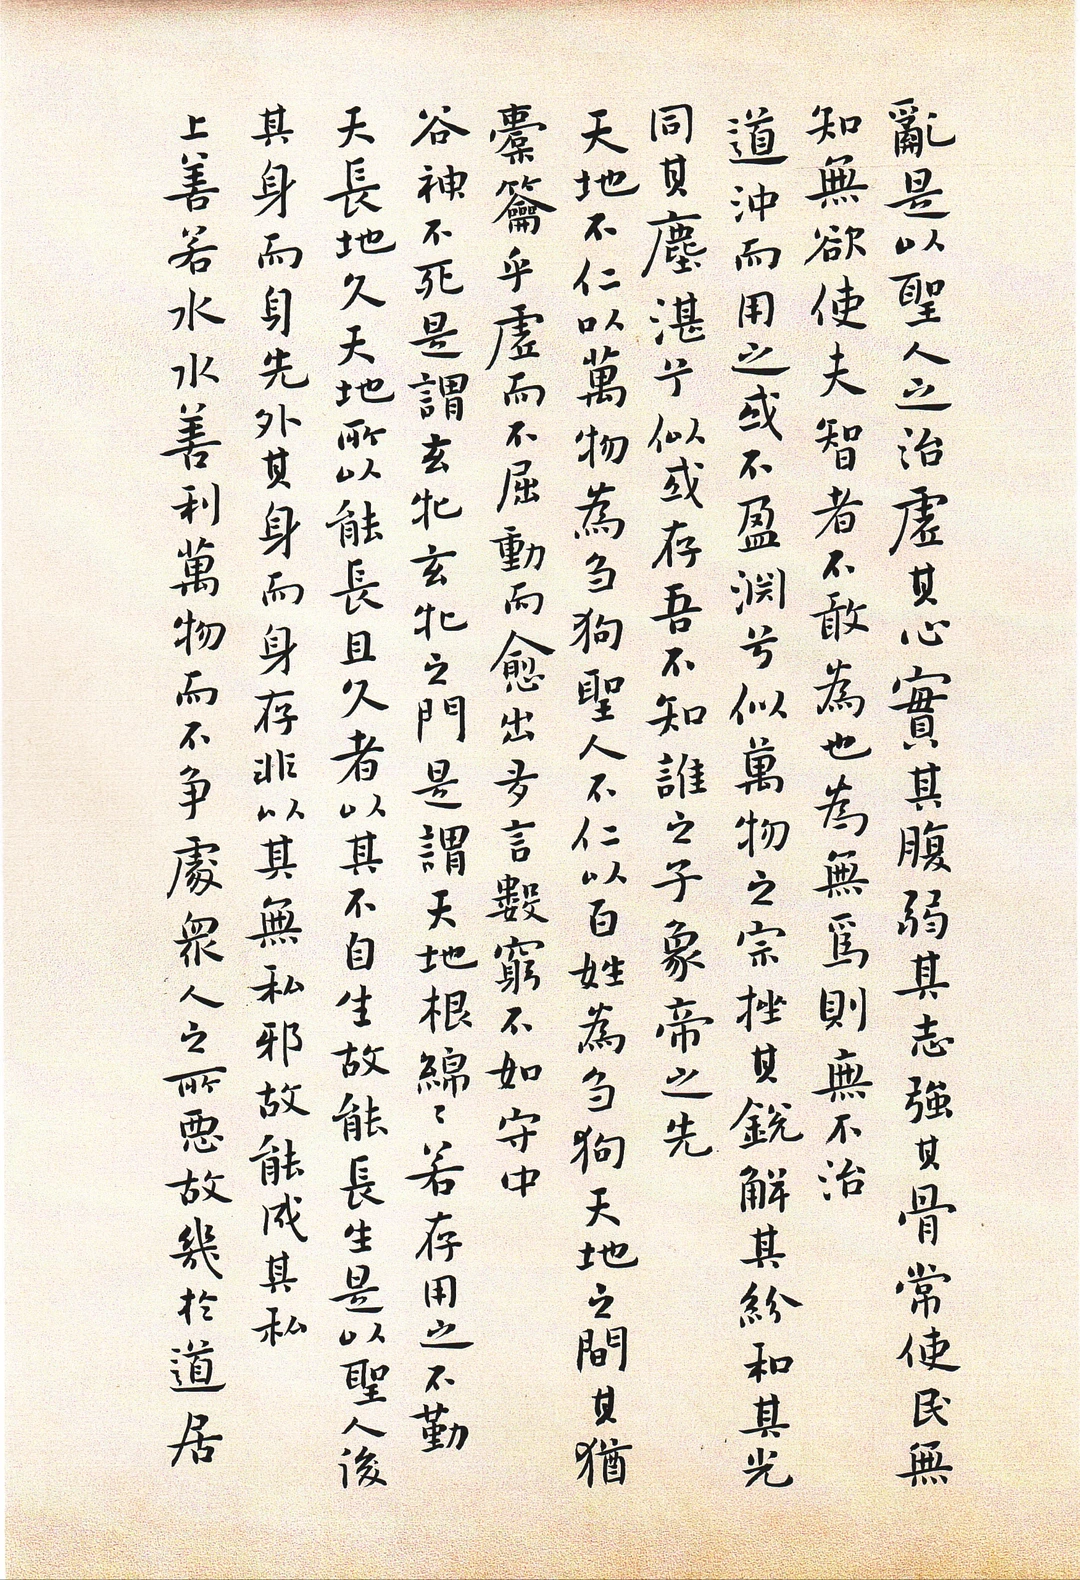 亂是以聖人之治虛其心實其腹弱其志強其骨常使民無
知無欲使夫智者不敢為也為無爲則無不治
道沖而用之或不盈淵兮似萬物之宗挫其銳解其紛和其光
同其塵湛兮似或存吾不知誰之子象帝之先
天地不仁以萬物為芻狗聖人不仁以百姓為芻狗天地之間其猶
橐籥乎虛而不屈動而愈出多言數窮不如守中
谷神不死是謂玄牝玄牝之門是謂天地根綿〻若存用之不勤
天長地久天地所以能長且久者以其不自生故能長生是以聖人後
其身而身先外其身而身存非以其無私邪故能成其私
上善若水水善利萬物而不争處衆人之所惡故幾於道居